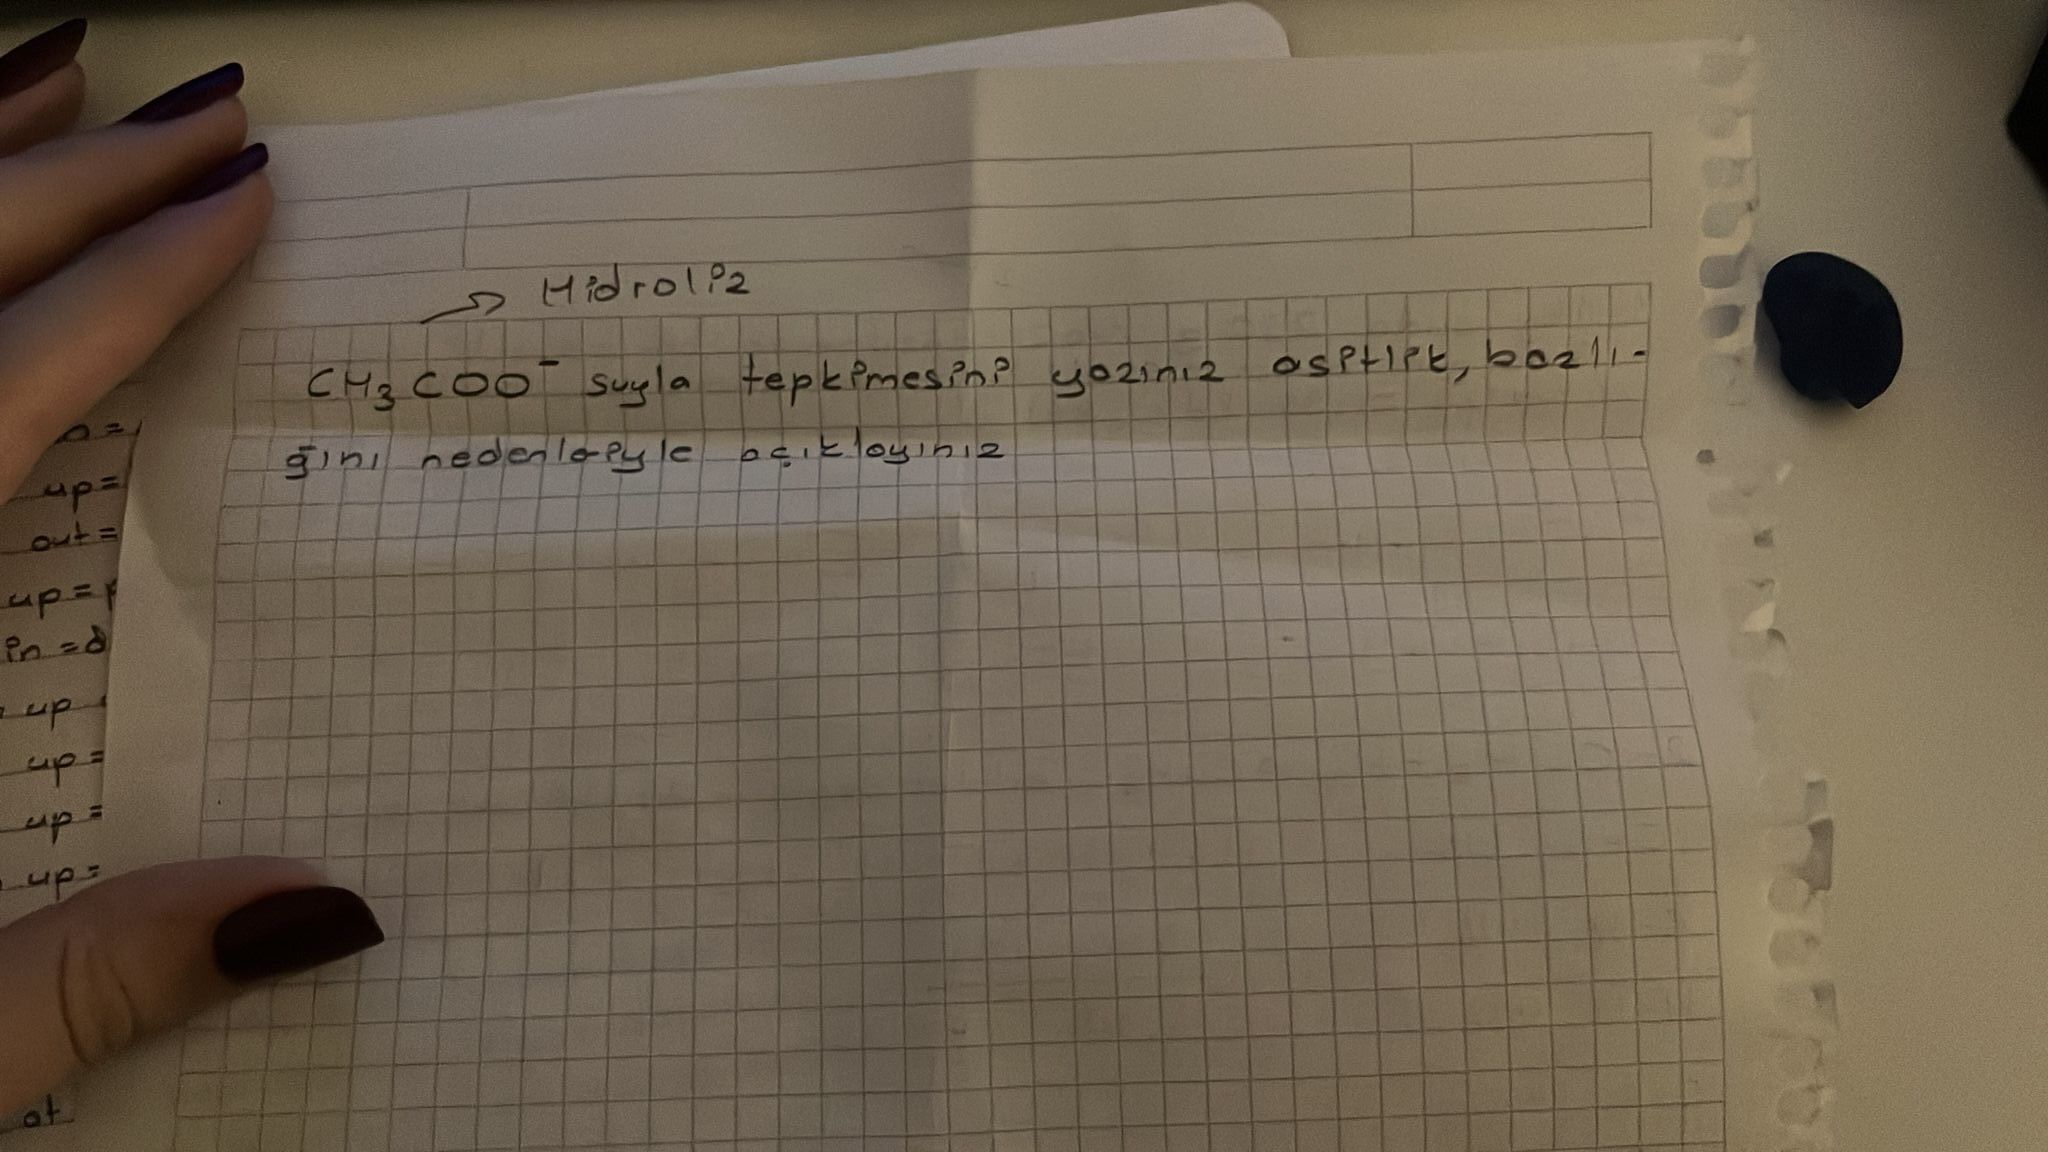 Hidroliz
CH3COO⁻ suyla tepkimesini yazınız asitlik, bazlı-
ğını nedenleriyle açıklayınız
up=
out=
up=
in =d
up
up=
up=
up=
at